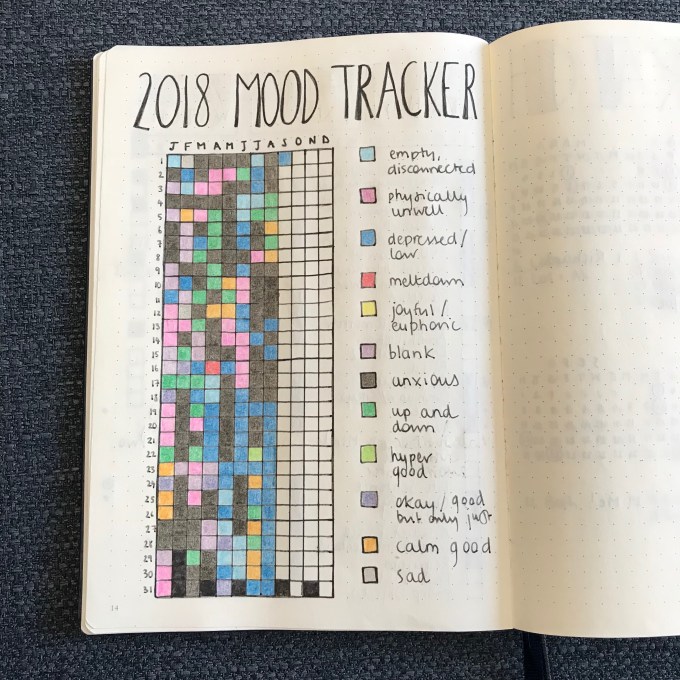 2018 MOOD TRACKER
J F M A M J J A S O N D
1
2
3
4
5
6
7
8
9
10
11
12
13
14
15
16
17
18
19
20
21
22
23
24
25
26
27
28
29
30
31
empty,
disconnected
physically
unwell
depressed/
low
meltdown
joyful/
euphoric
blank
anxious
up and
down
hyper
good
okay/good
but only just
calm good
sad
14